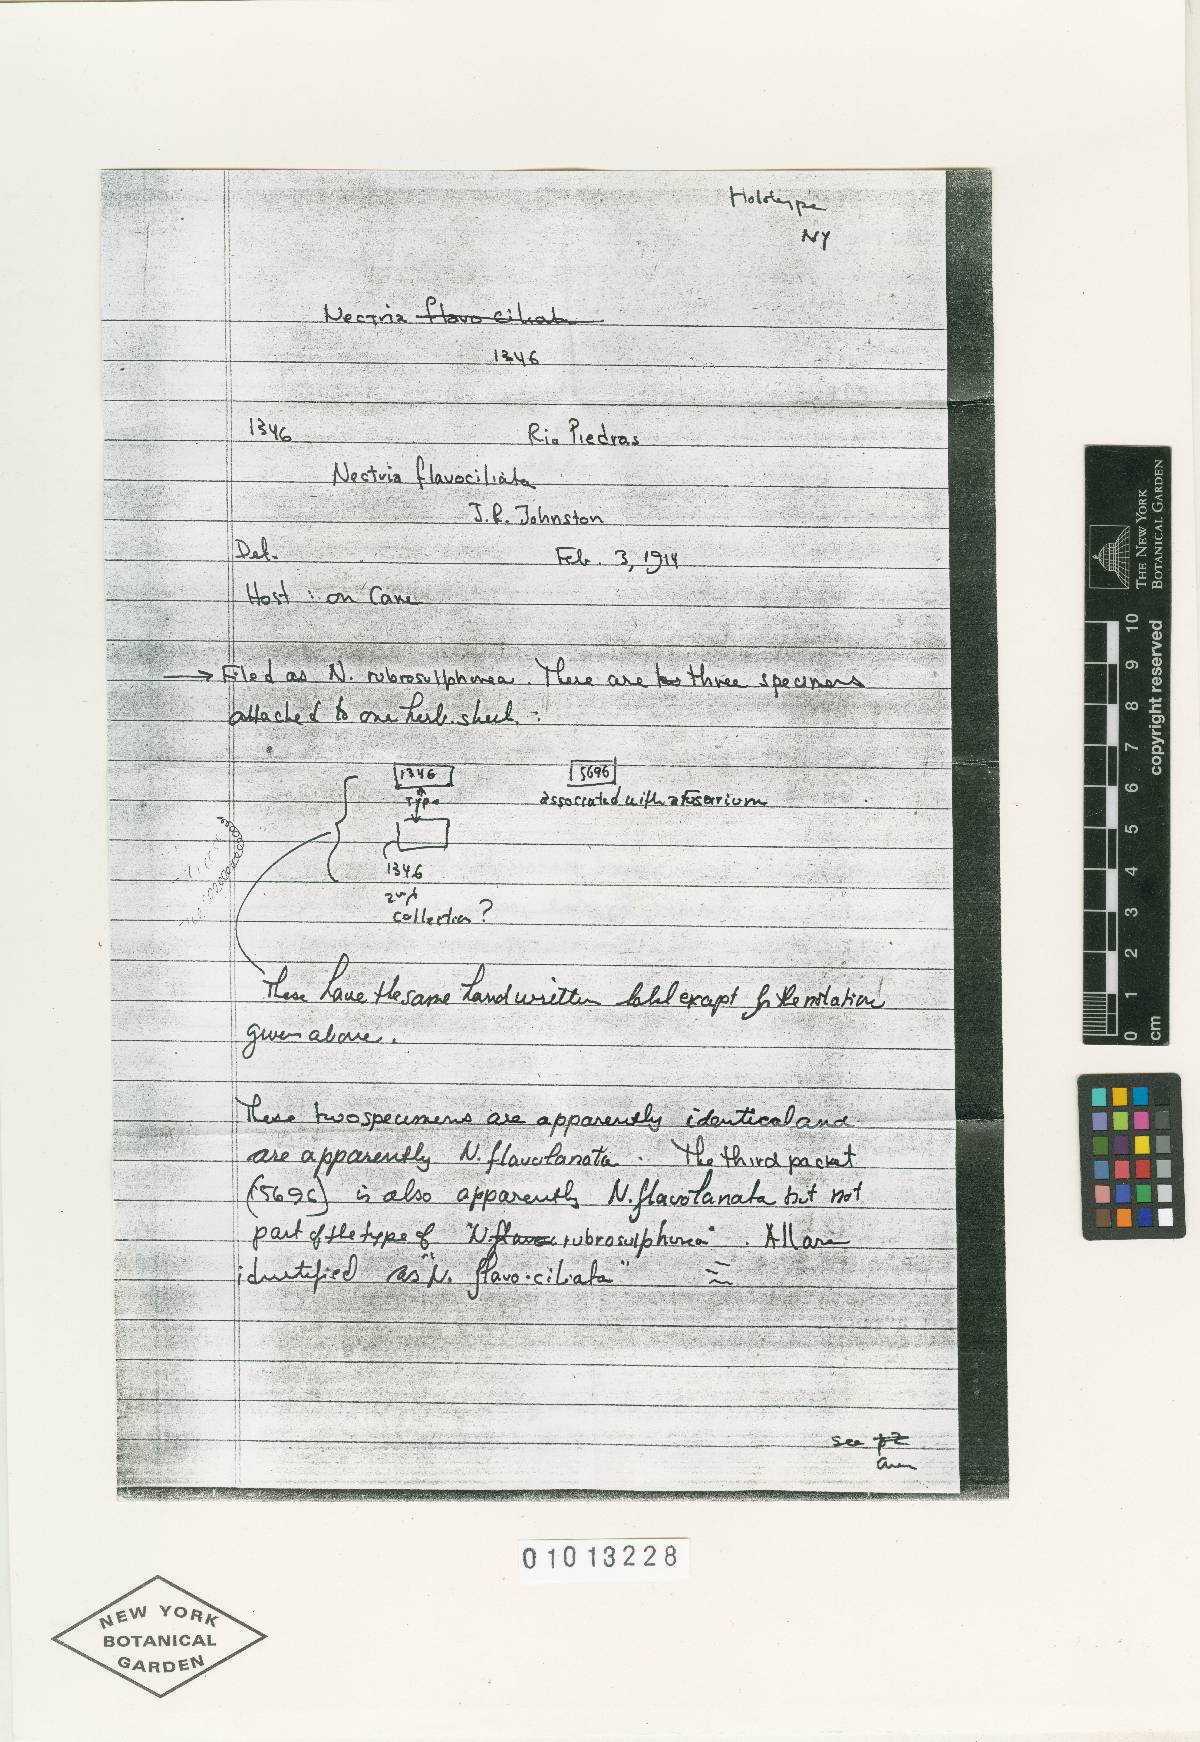 Holotype
NY
Nectria flavo ciliata
1346
1346 Rio Piedras
Nectria flavociliata
J.R. Johnston
Det. Feb. 3, 1914
Host : on Cane
→ Filed as N. rubrosulphurea. There are three specimens
attached to one herb. sheet :
1346 5696
Type associated with a Fusarium
1346
2nd
collection ?
These have the same handwritten label except for the notation
given above.
These two specimens are apparently identical and
are apparently N. flavolanata. The third packet
(5696) is also apparently N. flavolanata but not
part of the type of "N. rubrosulphurea". All are
identified as "N. flavo-ciliata"
see p2
THE NEW YORK
BOTANICAL GARDEN
copyright reserved
10 9 8 7 6 5 4 3 2 1 0
cm
01013228
NEW YORK
BOTANICAL
GARDEN